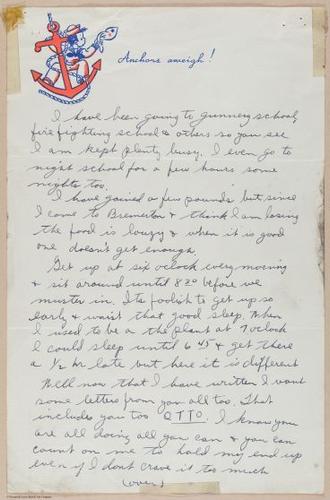 Anchors aweigh!
I have been going to gunnery school,
fire fighting school & others so you see
I am kept plenty busy. I even go to
night school for a few hours some
nights too.
I have gained a few pounds but since
I come to Bremerton I think I am losing
the food is lousy & when it is good
one doesn't get enough.
Get up at six oclock every morning
& sit around until 8 30 before we
muster in. Its foolish to get up so
early & waist that good sleep. When
I used to be at the plant at 7 oclock
I could sleep until 6 45 & get there
a 1/2 hr late but here it is different
Well now that I have written I want
some letters from you all too. That
includes you too OTTO. I know you
are all doing all you can & you can
count on me to hold my end up
even if I dont crave it to much
(over)